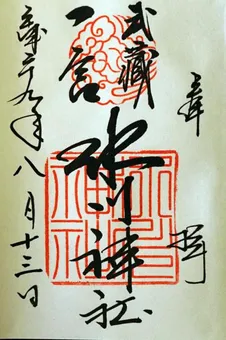 奉拝
武蔵
一宮
氷川神社
平成二十九年八月十三日